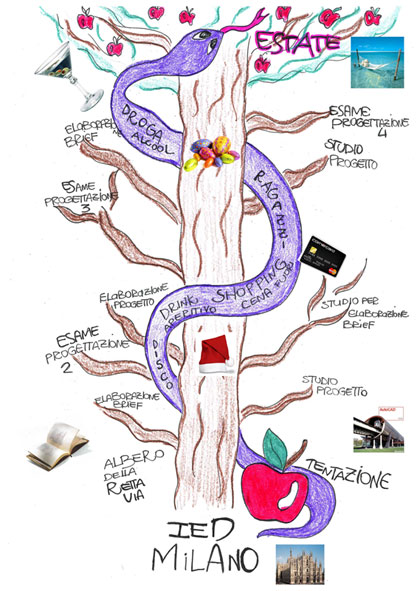 ESTATE
DROGA
ALCOOL
ELABORAZ
BRIEF
ESAME
PROGETTAZIONE
4
STUDIO
PROGETTO
ESAME
PROGETTAZIONE
3
RAGAZZI
SHOPPING
CENA FUORI
DRINK
APERITIVO
DISCO
ELABORAZIONE
PROGETTO
STUDIO PER
ELABORAZIONE
BRIEF
ESAME
PROGETTAZIONE
2
ELABORAZIONE
BRIEF
STUDIO
PROGETTO
AutoCAD
ALBERO
DELLA
RETTA
VIA
TENTAZIONE
IED
MILANO